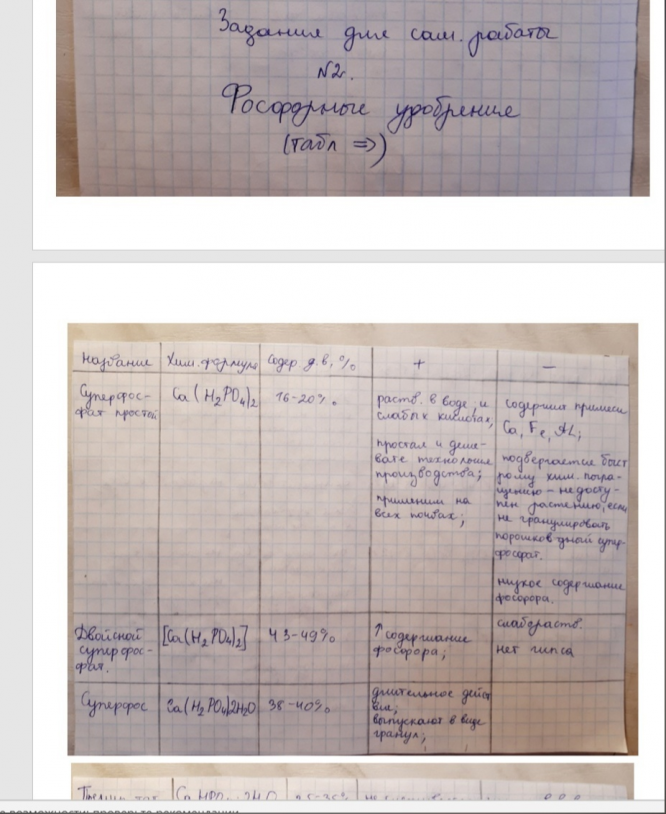 Задания для сам. работы
№2.
Фосфорные удобрение
(табл ⇒)
Название Хим. формула Содер д.в, % + −
Суперфос-
фат простой
Ca(H₂PO₄)₂
16-20%.
раств. в воде и
слабых кислотах,
простая и деше-
вая технология
производства;
применим на
всех почвах;
содержит примеси
Ca, Fe, Al;
подвергается быст
рому хим. погло-
щению - недосту-
пен растению, если
не гранулировать
порошковидный супер-
фосфат.
низкое содержание
фосфора.
Двойной
суперфос-
фат.
[Ca(H₂PO₄)₂]
43-49%
↑ содержание
фосфора;
слабораств.
нет гипса
Суперфос
Ca(H₂PO₄)2H₂O
38-40%
длительное дейст
вие;
выпускают в виде
гранул;